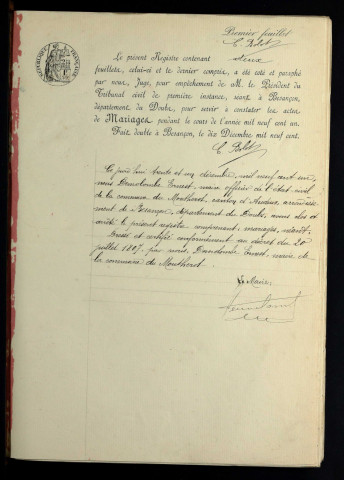 Premier feuillet
Le présent Registre contenant deux
feuillets, celui-ci et le dernier compris, a été coté et paraphé
par nous, Juge, pour empêchement de M. le Président du
Tribunal civil de première instance, séant à Besançon,
département du Doubs, pour servir à constater les actes
de Mariages pendant le cours de l'année mil neuf cent un.
Fait double à Besançon, le dix Décembre mil neuf cent.
Ce jour'hui trente et un décembre, mil neuf cent un,
nous Ernest maire officier de l'état civil
de la commune de Montherot, canton d'Audeux, arrondisse-
ment de Besançon, département du Doubs, avons clos et
arrêté le présent registre comprenant, mariages, néant.
Dressé et certifié conformément au décret du 20
juillet 1807, par nous, Ernest, maire de
la commune de Montherot.
Le Maire,